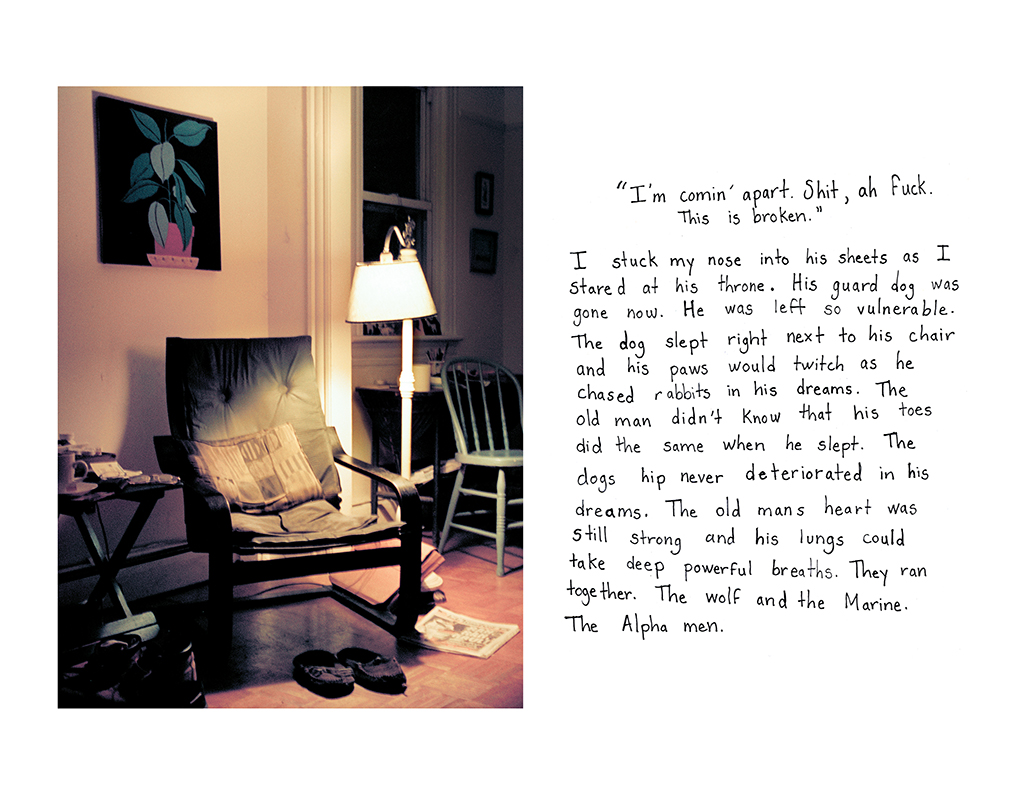 "I'm comin' apart. Shit, ah Fuck.
This is broken."
I stuck my nose into his sheets as I
stared at his throne. His guard dog was
gone now. He was left so vulnerable.
The dog slept right next to his chair
and his paws would twitch as he
chased rabbits in his dreams. The
old man didn't know that his toes
did the same when he slept. The
dogs hip never deteriorated in his
dreams. The old mans heart was
still strong and his lungs could
take deep powerful breaths. They ran
together. The wolf and the Marine.
The Alpha men.